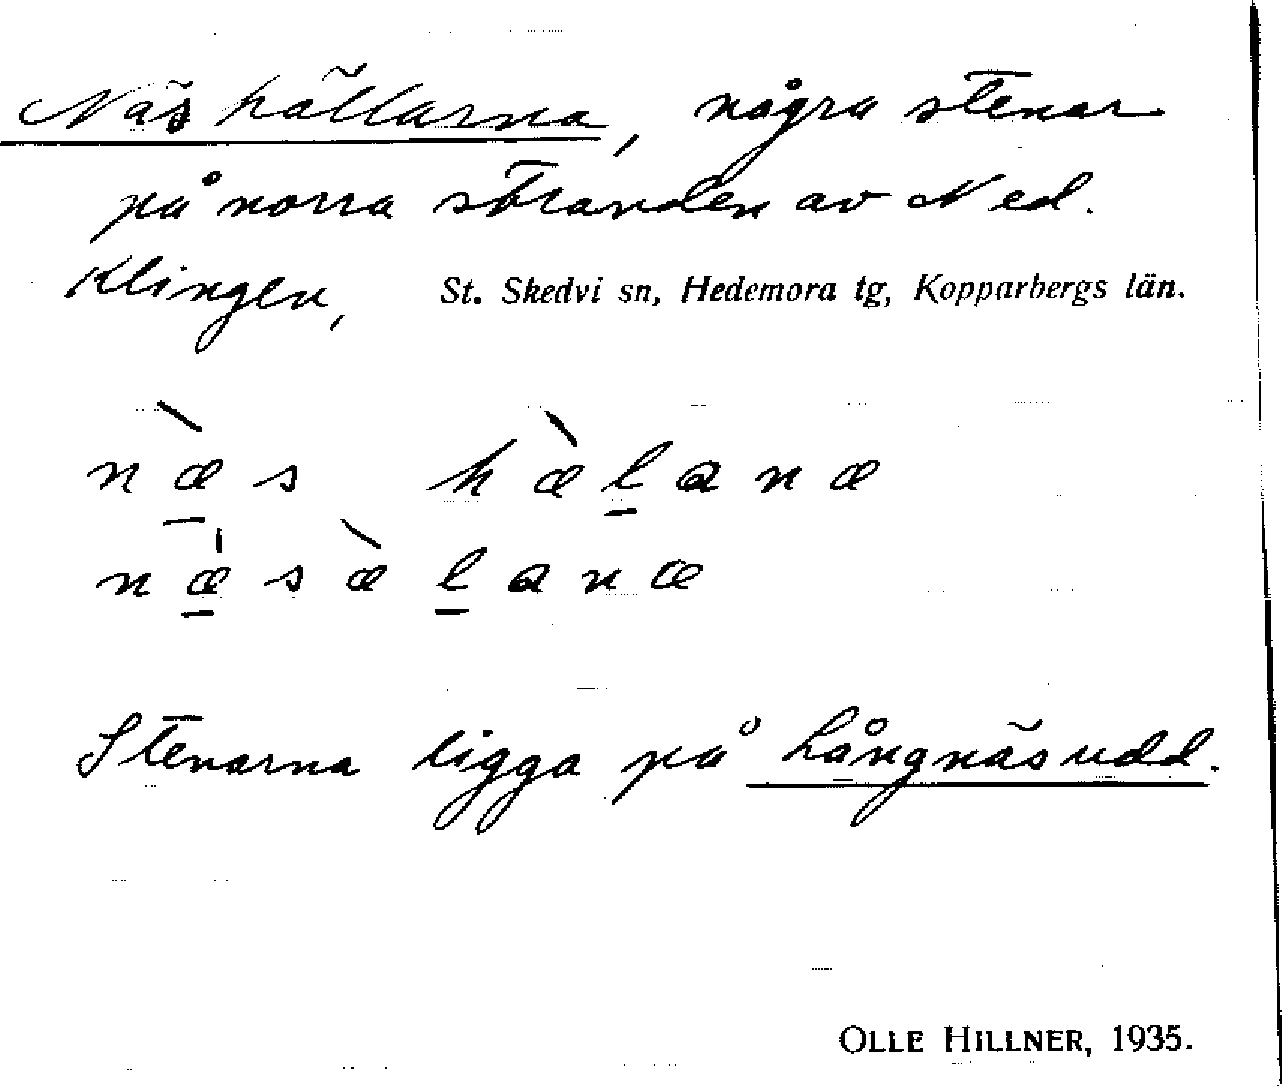 Näshällarna, några stenar
på norra stranden av Ned.
Klingen, St. Skedvi sn, Hedemora tg, Kopparbergs län.
næ̀s hæ̀lanæ
næsæ̀lanæ
Stenarna ligga på Långnäsudd.
OLLE HILLNER, 1935.